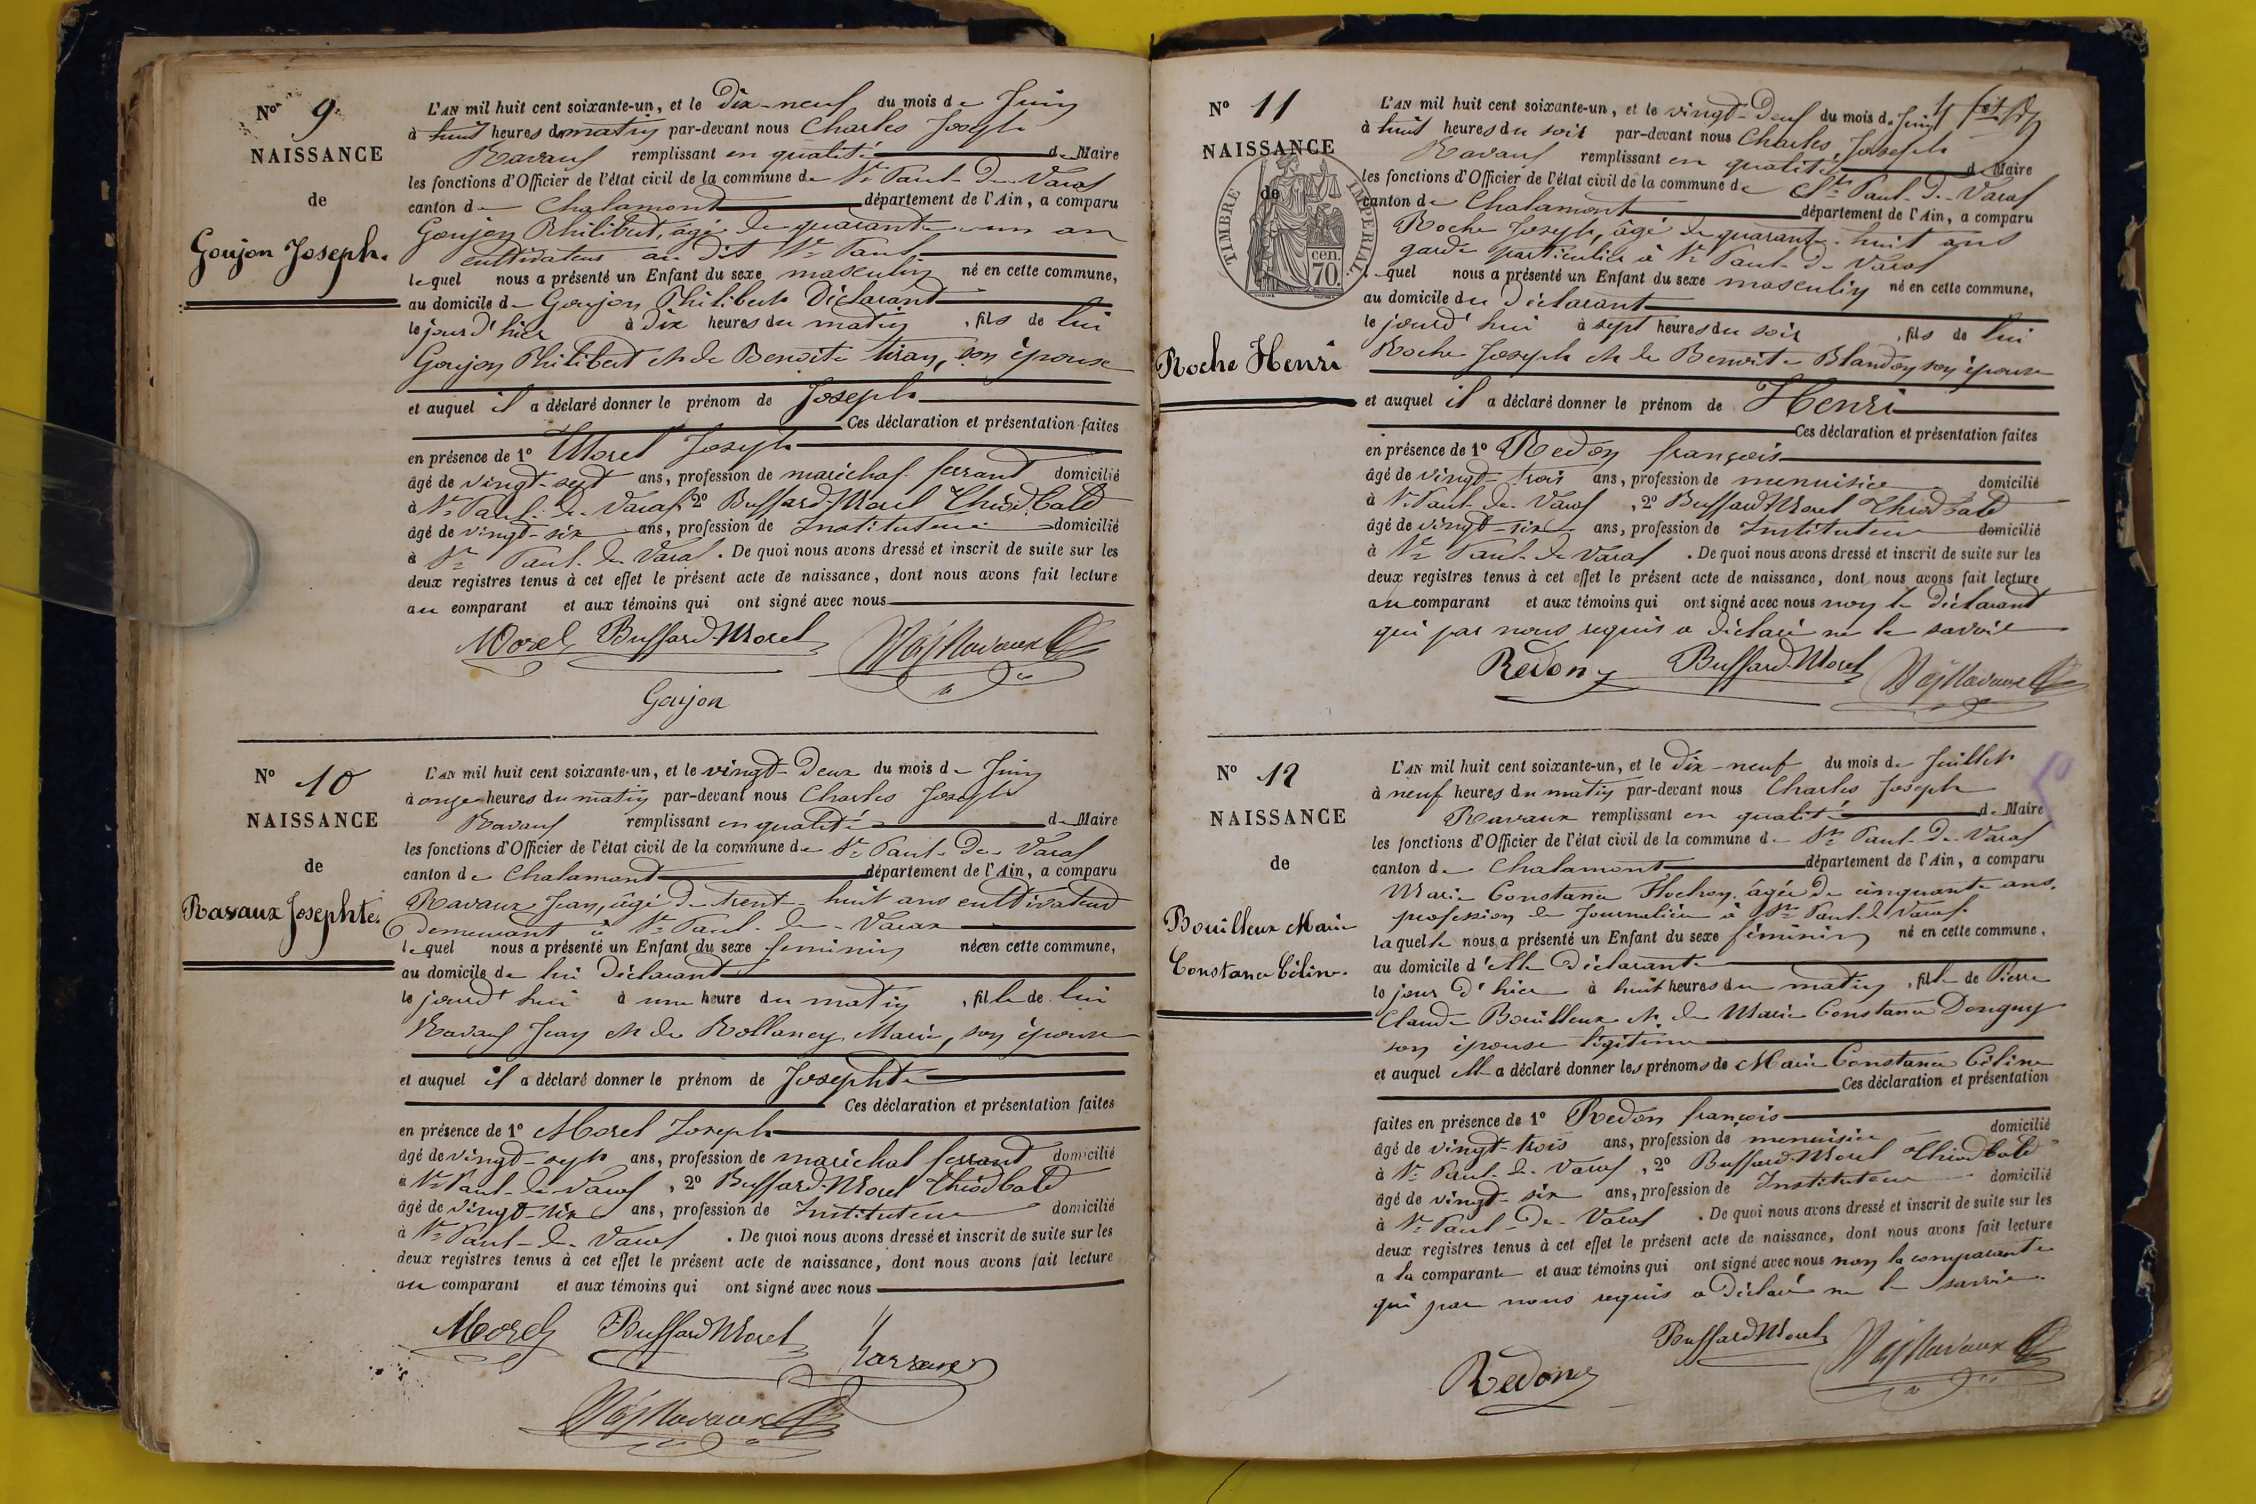 No 9.
NAISSANCE
de
Goujon Joseph.
L'AN mil huit cent soixante-un, et le Dix-neuf du mois de Juin
à huit heures du matin par-devant nous Charles Joseph
Ravaux remplissant en qualité de Maire
les fonctions d'Officier de l'état civil de la commune de St Paul-de-Varax
canton de Chalamont département de l'Ain, a comparu
Goujon Philibert, âgé de quarante-un an
cultivateur au dit St Paul
lequel nous a présenté un Enfant du sexe masculin né en cette commune,
au domicile de Goujon Philibert Déclarant
le jour d'hier à dix heures du matin, fils de lui
Goujon Philibert et de Benoite son épouse
et auquel il a déclaré donner le prénom de Joseph
Ces déclaration et présentation faites
en présence de 1o Morel Joseph
âgé de vingt-sept ans, profession de maréchal ferrant domicilié
à St Paul-de-Varax, 2o Buffard-Morel Théodbald
âgé de vingt-six ans, profession de Instituteur domicilié
à St Paul-de-Varax. De quoi nous avons dressé et inscrit de suite sur les
deux registres tenus à cet effet le présent acte de naissance, dont nous avons fait lecture
au comparant et aux témoins qui ont signé avec nous
Morel Buffard-Morel Ravaux
Goujon
No 10
NAISSANCE
de
Ravaux Josephte.
L'AN mil huit cent soixante-un, et le vingt-deux du mois de Juin
à onze heures du matin par-devant nous Charles Joseph
Ravaux remplissant en qualité de Maire
les fonctions d'Officier de l'état civil de la commune de St Paul-de-Varax
canton de Chalamont département de l'Ain, a comparu
Ravaux Jean, âgé de trente-huit ans cultivateur
demeurant à St Paul-de-Varax
lequel nous a présenté un Enfant du sexe féminin née en cette commune,
au domicile de lui Déclarant
le jourd'hui à une heure du matin, fille de lui
Ravaux Jean et de Rollancy Marie, son épouse
et auquel il a déclaré donner le prénom de Josephte
Ces déclaration et présentation faites
en présence de 1o Morel Joseph
âgé de vingt-sept ans, profession de maréchal ferrant domicilié
à St Paul-de-Varax, 2o Buffard-Morel Théodbald
âgé de vingt-six ans, profession de Instituteur domicilié
à St Paul-de-Varax. De quoi nous avons dressé et inscrit de suite sur les
deux registres tenus à cet effet le présent acte de naissance, dont nous avons fait lecture
au comparant et aux témoins qui ont signé avec nous
Morel Buffard Morel
Ravaux
No 11
NAISSANCE
de
TIMBRE IMPÉRIAL
cen. 70.
Roche Henri
L'AN mil huit cent soixante-un, et le vingt-deux du mois de Juin
à huit heures du soir par-devant nous Charles, Joseph
Ravaux remplissant en qualité de Maire
les fonctions d'Officier de l'état civil de la commune de St Paul-de-Varax
canton de Chalamont département de l'Ain, a comparu
Roche Joseph, âgé de quarante-huit ans
garde particulier à St Paul-de-Varax
lequel nous a présenté un Enfant du sexe masculin né en cette commune,
au domicile du Déclarant
le jourd'hui à sept heures du soir, fils de lui
Roche Joseph et de Benoite Blandon son épouse
et auquel il a déclaré donner le prénom de Henri
Ces déclaration et présentation faites
en présence de 1o Redon françois
âgé de vingt-trois ans, profession de menuisier domicilié
à St Paul-de-Varax, 2o Buffard Morel Théodbald
âgé de vingt-six ans, profession de Instituteur domicilié
à St Paul-de-Varax. De quoi nous avons dressé et inscrit de suite sur les
deux registres tenus à cet effet le présent acte de naissance, dont nous avons fait lecture
au comparant et aux témoins qui ont signé avec nous non le déclarant
qui par nous requis a déclaré ne le savoir
Redon Buffard-Morel Ravaux
No 12
NAISSANCE
de
Bouilleux Marie
Constance Céline.
L'AN mil huit cent soixante-un, et le dix-neuf du mois de Juillet
à neuf heures du matin par-devant nous Charles Joseph
Ravaux remplissant en qualité de Maire
les fonctions d'Officier de l'état civil de la commune de St Paul-de-Varax
canton de Chalamont département de l'Ain, a comparu
Marie Constance âgée de cinquante ans,
profession de Journalière à St Paul-de-Varax.
laquelle nous a présenté un Enfant du sexe féminin né en cette commune,
au domicile d'elle Déclarante
le jour d'hier à huit heures du matin, fille de Pierre
Claude Bouilleux et de Marie Constance Donguy
son épouse légitime
et auquel elle a déclaré donner les prénoms de Marie Constance Céline
Ces déclaration et présentation
faites en présence de 1o Redon françois
âgé de vingt-trois ans, profession de menuisier domicilié
à St Paul-de-Varax, 2o Buffard-Morel Théodbald
âgé de vingt-six ans, profession de Instituteur domicilié
à St Paul-de-Varax. De quoi nous avons dressé et inscrit de suite sur les
deux registres tenus à cet effet le présent acte de naissance, dont nous avons fait lecture
a la comparante et aux témoins qui ont signé avec nous non la comparante
qui par nous requis a déclaré ne le savoir.
Redon Buffard Morel Ravaux